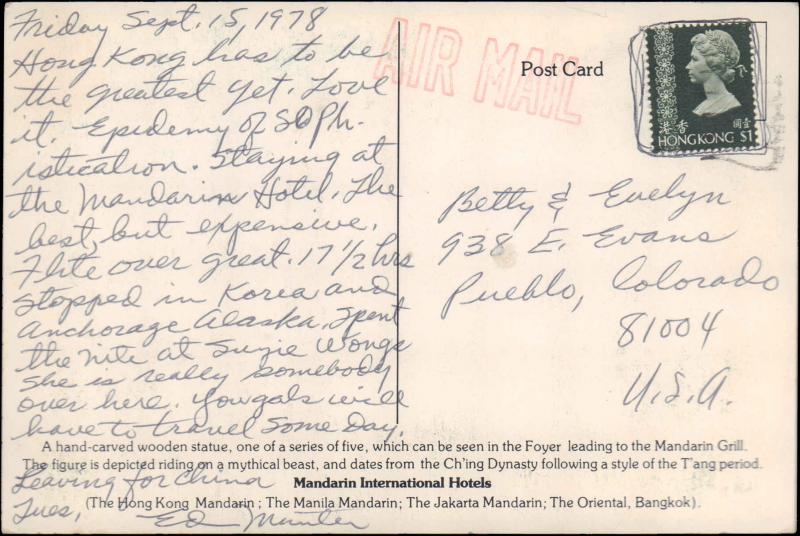 Friday Sept. 15, 1978
Hong Kong has to be
the greatest yet. Love
it. Epidemy of SOPh-
istication. Staying at
the Mandarin Hotel. The
best, but expensive.
Flite over great. 17 1/2 hrs
stopped in Korea and
Anchorage Alaska. Spent
the nite at Suzie Wongs
She is really somebody
over here. You gals will
have to travel some day.
Leaving for China
Tues,
Ed Munter
AIR MAIL
Post Card
香港 壹圓
HONG KONG $1
Betty & Evelyn
938 E. Evans
Pueblo, Colorado
81004
U.S.A.
A hand-carved wooden statue, one of a series of five, which can be seen in the Foyer leading to the Mandarin Grill.
The figure is depicted riding on a mythical beast, and dates from the Ch'ing Dynasty following a style of the T'ang period.
Mandarin International Hotels
(The Hong Kong Mandarin; The Manila Mandarin; The Jakarta Mandarin; The Oriental, Bangkok).